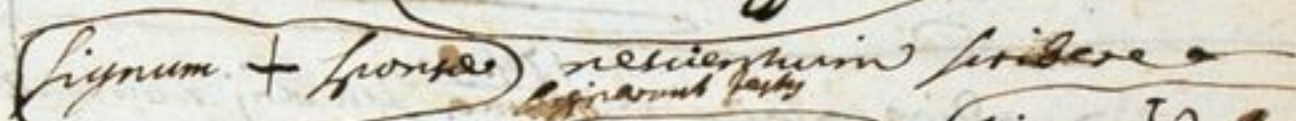 Signum + sponsae nescientium scribere
signarunt testes